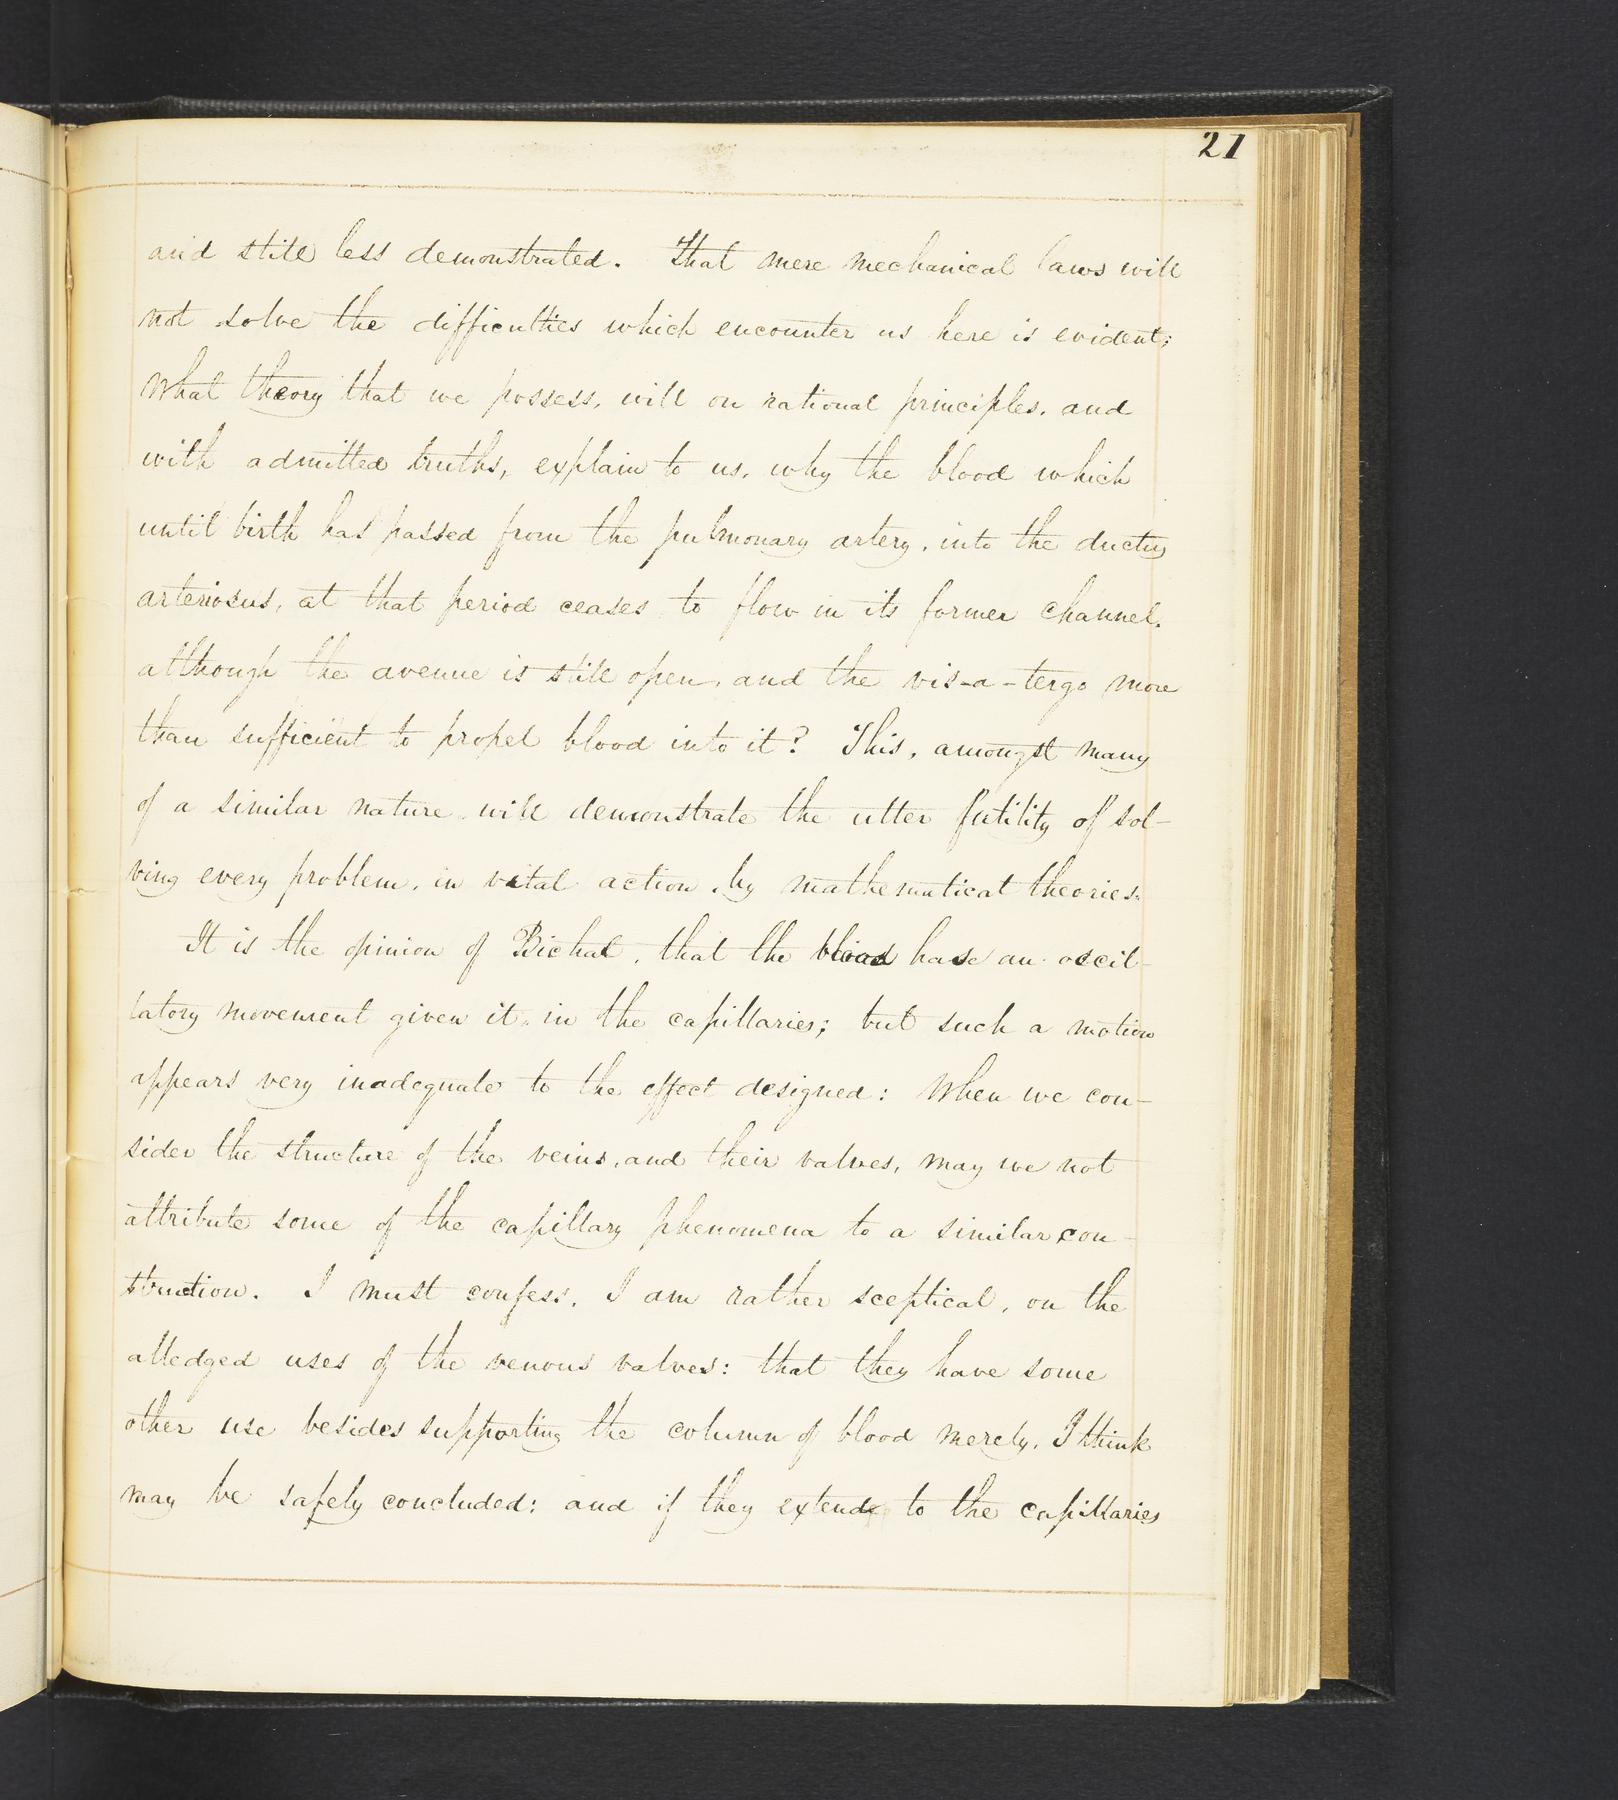 21
and still less demonstrated. That mere mechanical laws will
not solve the difficulties which encounter us here is evident;
What theory that we possess, will on rational principles, and
with admitted truths, explain to us, why the blood which
until birth has passed from the pulmonary artery, into the ductus
arteriosus, at that period ceases to flow in its former channel,
although the avenue is still open, and the vis-a-tergo more
than sufficient to propel blood into it? This, amongst many
of a similar nature will demonstrate the utter futility of sol-
ving every problem, in vital action, by mathematical theories.
It is the opinion of Bichat, that the blood have an oscil-
latory movement given it, in the capillaries; but such a motion
appears very inadequate to the effect designed: When we con-
sider the structure of the veins, and their valves, may we not
attribute some of the capillary phenomena to a similar con-
struction. I must confess, I am rather sceptical, on the
alledged uses of the venous valves: that they have some
other use besides supporting the column of blood merely, I think
may be safely concluded: and if they extend to the capillaries